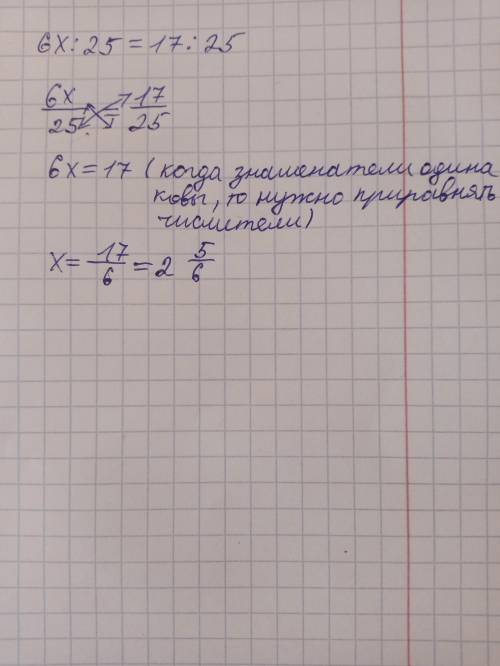 6x : 25 = 17 : 25
6x/25 = 17/25
6x = 17 (когда знаменатели одина
ковы, то нужно приравнять
числители)
x = 17/6 = 2 5/6